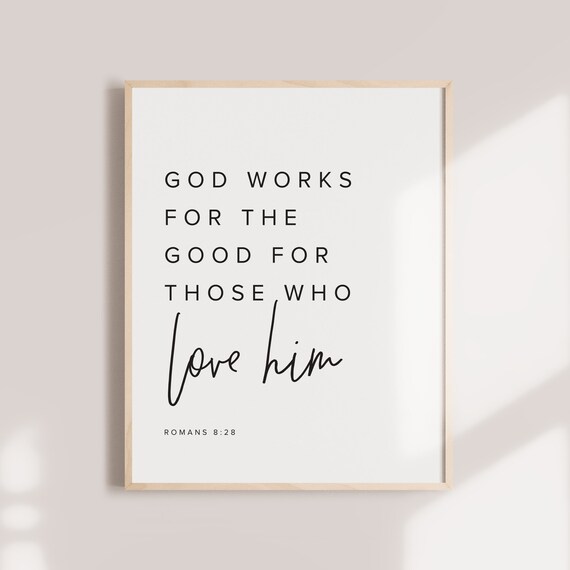 GOD WORKS
FOR THE
GOOD FOR
THOSE WHO
love him
ROMANS 8:28